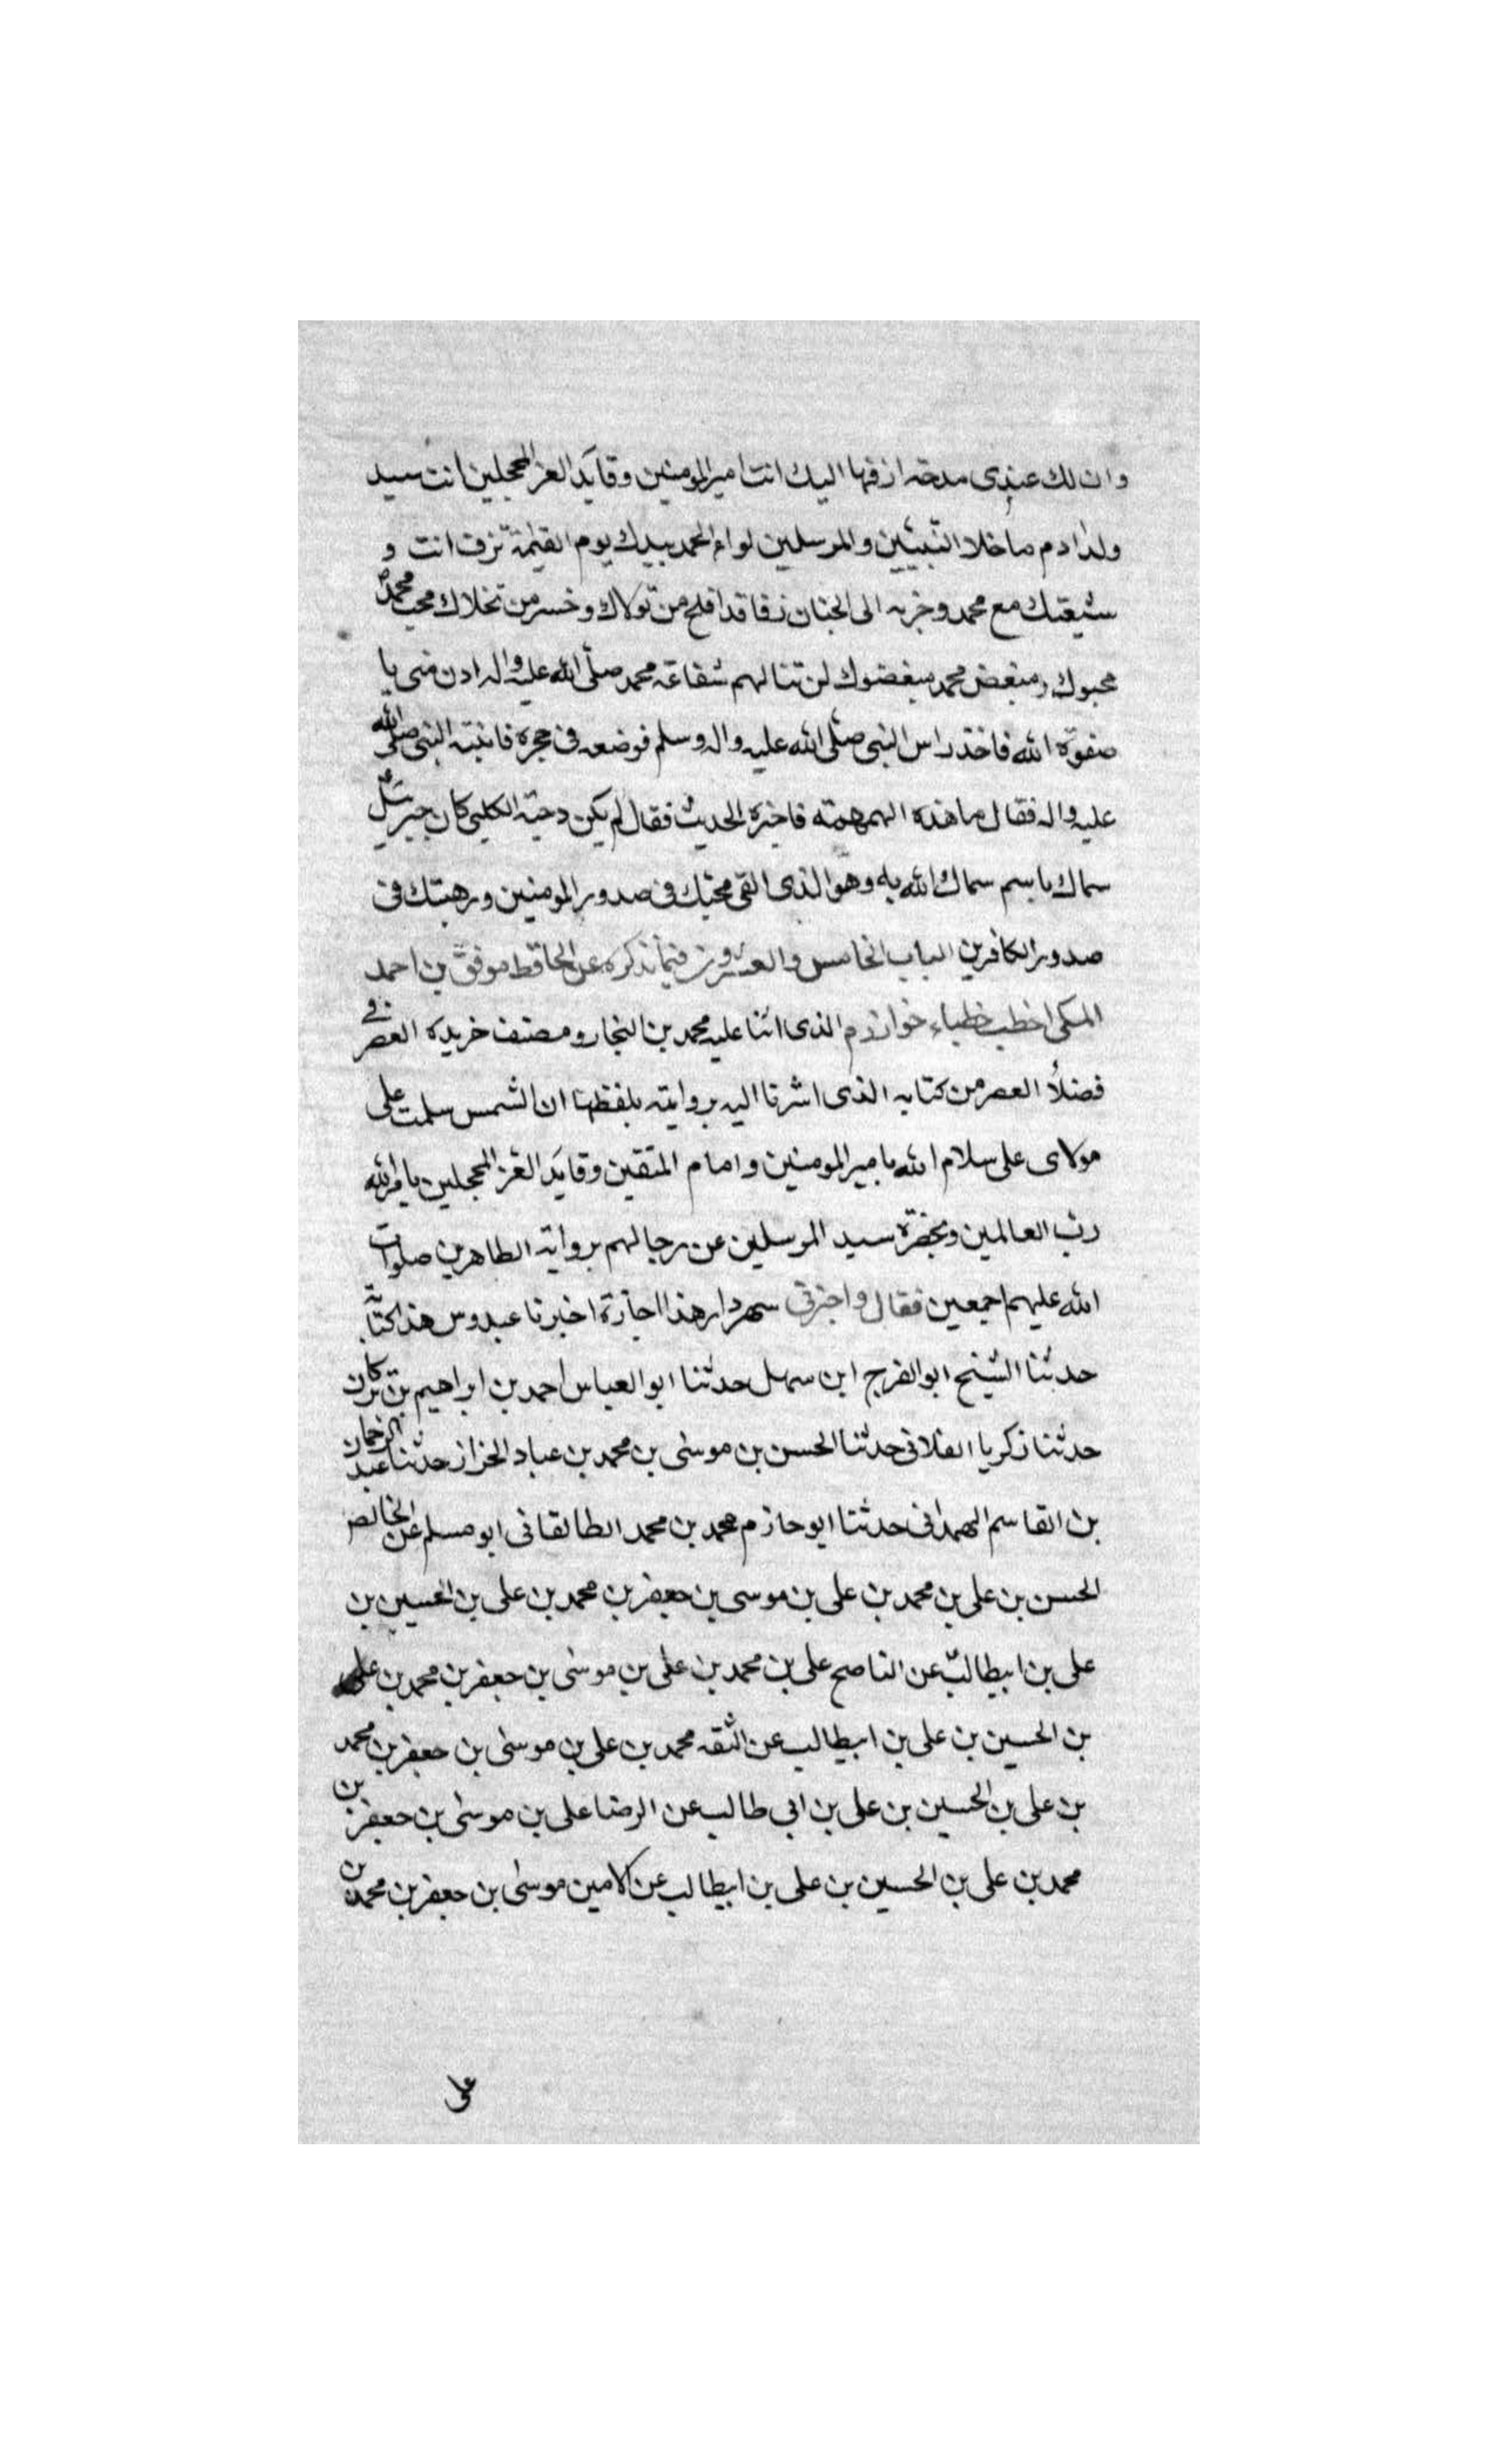 وان لك عندى مدحة ازفها اليك انت امير المومنين وقايد الغر المحجلين انت سيد
ولد ادم ما خلا النبيين والمرسلين لواء الحمد بيدك يوم القيمة تزف انت و
شيعتك مع محمد وحزبه الى الجنان زفا قد افلح من تولاك وخسر من تخلاك محب محمد
محبوك ومبغض محمد مبغضوك لن تنالهم شفاعة محمد صلى الله عليه واله ادن منى يا
صفوة الله فاخذ راس النبى صلى الله عليه واله وسلم فوضعه فى حجره فانتبه النبى صلى الله
عليه واله فقال ما هذه الهمهمة فاخبره الحديث فقال لم يكن دحية الكلبى كان جبرئيل
سماك باسم سماك الله به وهو الذى القى محبتك فى صدور المومنين ورهبتك فى
صدور الكافرين الباب الخامس والعشرون فيما نذكره عن الحافظ موفق بن احمد
المكى اخطب خطباء خوارزم الذى اثنا عليه محمد بن النجار ومصنف خريدة العصر فى
فضلأ العصر من كتابه الذى اشرنا اليه بروايته بلفظها ان الشمس سلمت على
مولاى على سلام الله بامير المومنين وامام المتقين وقايد الغر المحجلين بامر الله
رب العالمين وبحضرة سيد المرسلين عن رجالهم برواية الطاهرين صلوات
الله عليهم اجمعين فقال واخبرنى سهردار هذا اجازة اخبرنا عبدوس هذا كتابة
حدثنا الشيخ ابو الفرج ابن سهل حدثنا ابو العباس احمد بن ابراهيم بن تركان
حدثنا زكريا الغلانى حدثنا الحسن بن موسى بن محمد بن عباد الخزاز حدثنا عبد الرحمان
بن القاسم الهمدانى حدثنا ابو حازم محمد بن محمد الطالقانى ابو مسلم عن الخالص
الحسن بن على بن محمد بن على بن موسى بن جعفر بن محمد بن على بن الحسين بن
على بن ابيطالب عن الناصح على بن محمد بن على بن موسى بن جعفر بن محمد بن على
بن الحسين بن على بن ابيطالب عن الثقه محمد بن على بن موسى بن جعفر بن محمد
بن على بن الحسين بن على بن ابى طالب عن الرضا على بن موسى بن جعفر بن
محمد بن على بن الحسين بن على بن ابيطالب عن الامين موسى بن جعفر بن محمد بن
على